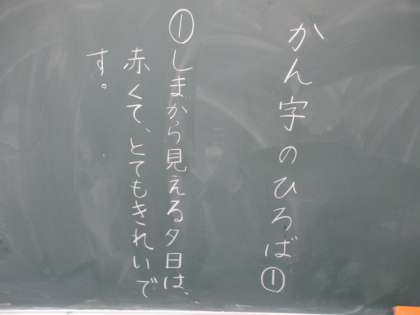 かん字のひろば①
①しまから見える夕日は、
赤くて、とてもきれいで
す。